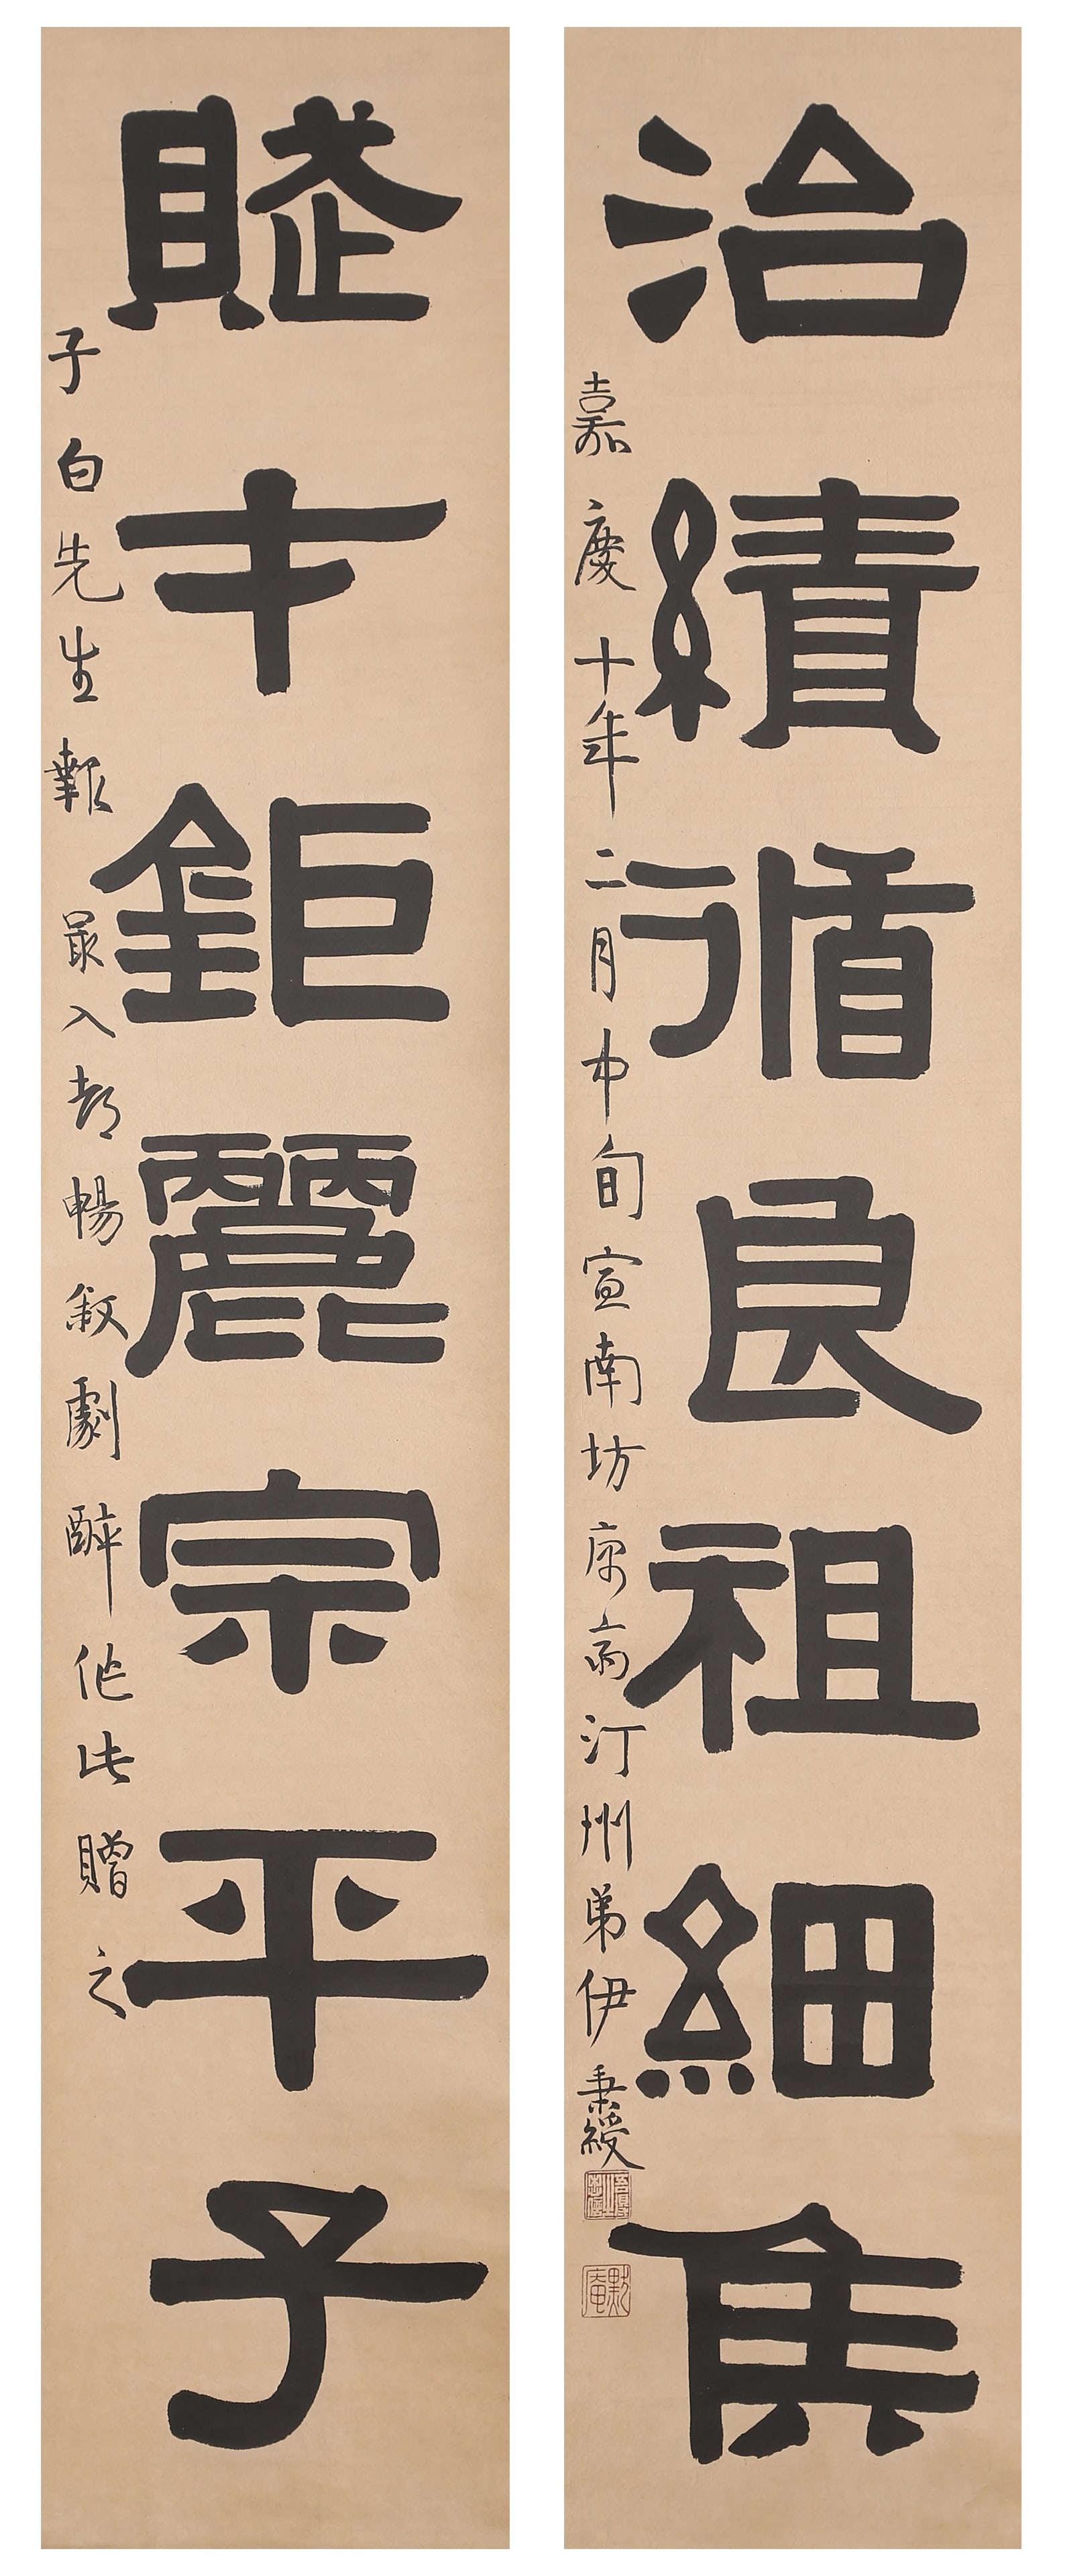 治績循良祖細侯
嘉慶十年二月中旬宣南坊寓齋汀州弟伊秉綬
吾得之忠信
默庵
賦才鉅麗宗平子
子白先生報最入都暢敘劇醉作此贈之